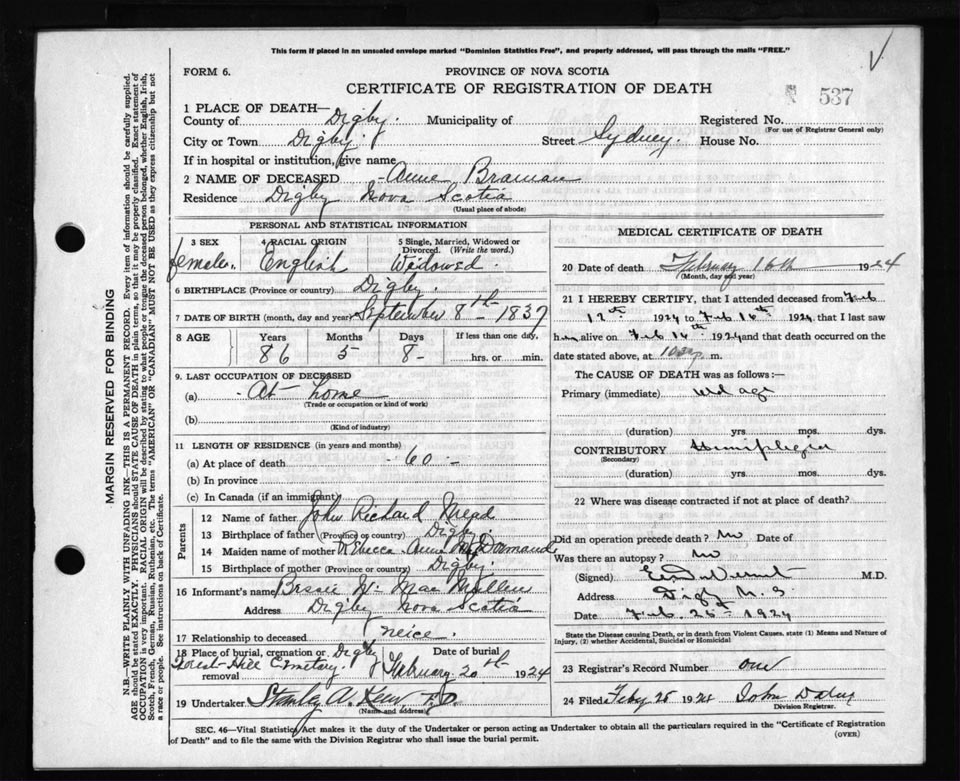 This form if placed in an unsealed envelope marked "Dominion Statistics Free", and properly addressed, will pass through the mails "FREE."
FORM 6.
PROVINCE OF NOVA SCOTIA
CERTIFICATE OF REGISTRATION OF DEATH
537
1 PLACE OF DEATH—
County of Digby. Municipality of Registered No.
(For use of Registrar General only)
City or Town Digby. Street Sydney. House No.
If in hospital or institution, give name
2 NAME OF DECEASED - Anne Braman
Residence Digby Nova Scotia
(Usual place of abode)
PERSONAL AND STATISTICAL INFORMATION
3 SEX 4 RACIAL ORIGIN 5 Single, Married, Widowed or Divorced. (Write the word.)
female. English Widowed.
6 BIRTHPLACE (Province or country) Digby.
7 DATE OF BIRTH (month, day and year) September 8th - 1837
8 AGE Years Months Days If less than one day,
86 5 8 - hrs. or min.
9. LAST OCCUPATION OF DECEASED
(a) - At home
(Trade or occupation or kind of work)
(b)
(Kind of industry)
11 LENGTH OF RESIDENCE (in years and months)
(a) At place of death - 60 -
(b) In province
(c) In Canada (if an immigrant)
Parents
12 Name of father John Richard
13 Birthplace of father (Province or country) Digby
14 Maiden name of mother Rebecca Anne McDormand
15 Birthplace of mother (Province or country) Digby.
16 Informant's name W. MacMullen
Address Digby Nova Scotia
17 Relationship to deceased neice.
18 Place of burial, cremation or removal Digby Date of burial
Forest Hill Cemetary. February 20th 1924
19 Undertaker Stanley A.
(Name and address)
MEDICAL CERTIFICATE OF DEATH
20 Date of death February 16th 1924
(Month, day and year)
21 I HEREBY CERTIFY, that I attended deceased from Feb
12th 1924 to Feb 16th 1924 that I last saw
h alive on Feb 16th 1924 and that death occurred on the
date stated above, at m.
The CAUSE OF DEATH was as follows:—
Primary (immediate) old age
(duration) yrs. mos. dys.
CONTRIBUTORY Hemiplegia
(Secondary)
(duration) yrs. mos. dys.
22 Where was disease contracted if not at place of death?
Did an operation precede death? No Date of
Was there an autopsy? no
(Signed) M.D.
Address Digby N.S.
Date Feb. 25th 1924
State the Disease causing Death, or in death from Violent Causes, state (1) Means and Nature of Injury, (2) whether Accidental, Suicidal or Homicidal
23 Registrar's Record Number one
24 Filed Feby 25 1924 John Daley
Division Registrar.
SEC. 46—Vital Statistics Act makes it the duty of the Undertaker or person acting as Undertaker to obtain all the particulars required in the "Certificate of Registration of Death" and to file the same with the Division Registrar who shall issue the burial permit.
(OVER)
MARGIN RESERVED FOR BINDING
N.B.—WRITE PLAINLY WITH UNFADING INK—THIS IS A PERMANENT RECORD. Every item of information should be carefully supplied.
AGE should be stated EXACTLY. PHYSICIANS should STATE CAUSE OF DEATH in plain terms, so that it may be properly classified. Exact statement of
OCCUPATION is very important. RACIAL ORIGIN will be described by stating to what people or tongue the deceased person belonged, whether English, Irish,
Scotch, French, German, Russian, Ruthenian, etc. The terms "AMERICAN" OR "CANADIAN" MUST NOT BE USED as they express citizenship but not
a race or people. See instructions on back of Certificate.